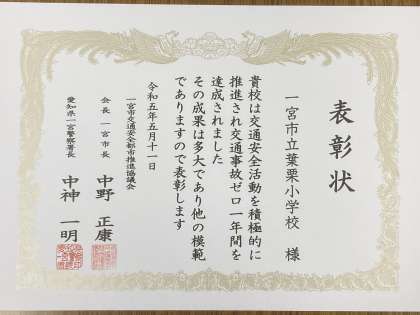 表彰状
一宮市立葉栗小学校 様
貴校は交通安全活動を積極的に
推進され交通事故ゼロ一年間を
達成されました
その成果は多大であり他の模範
でありますので表彰します
令和五年五月十一日
一宮市交通安全都市推進協議会
会長 一宮市長 中野 正康
愛知県一宮警察署長 中神 一明